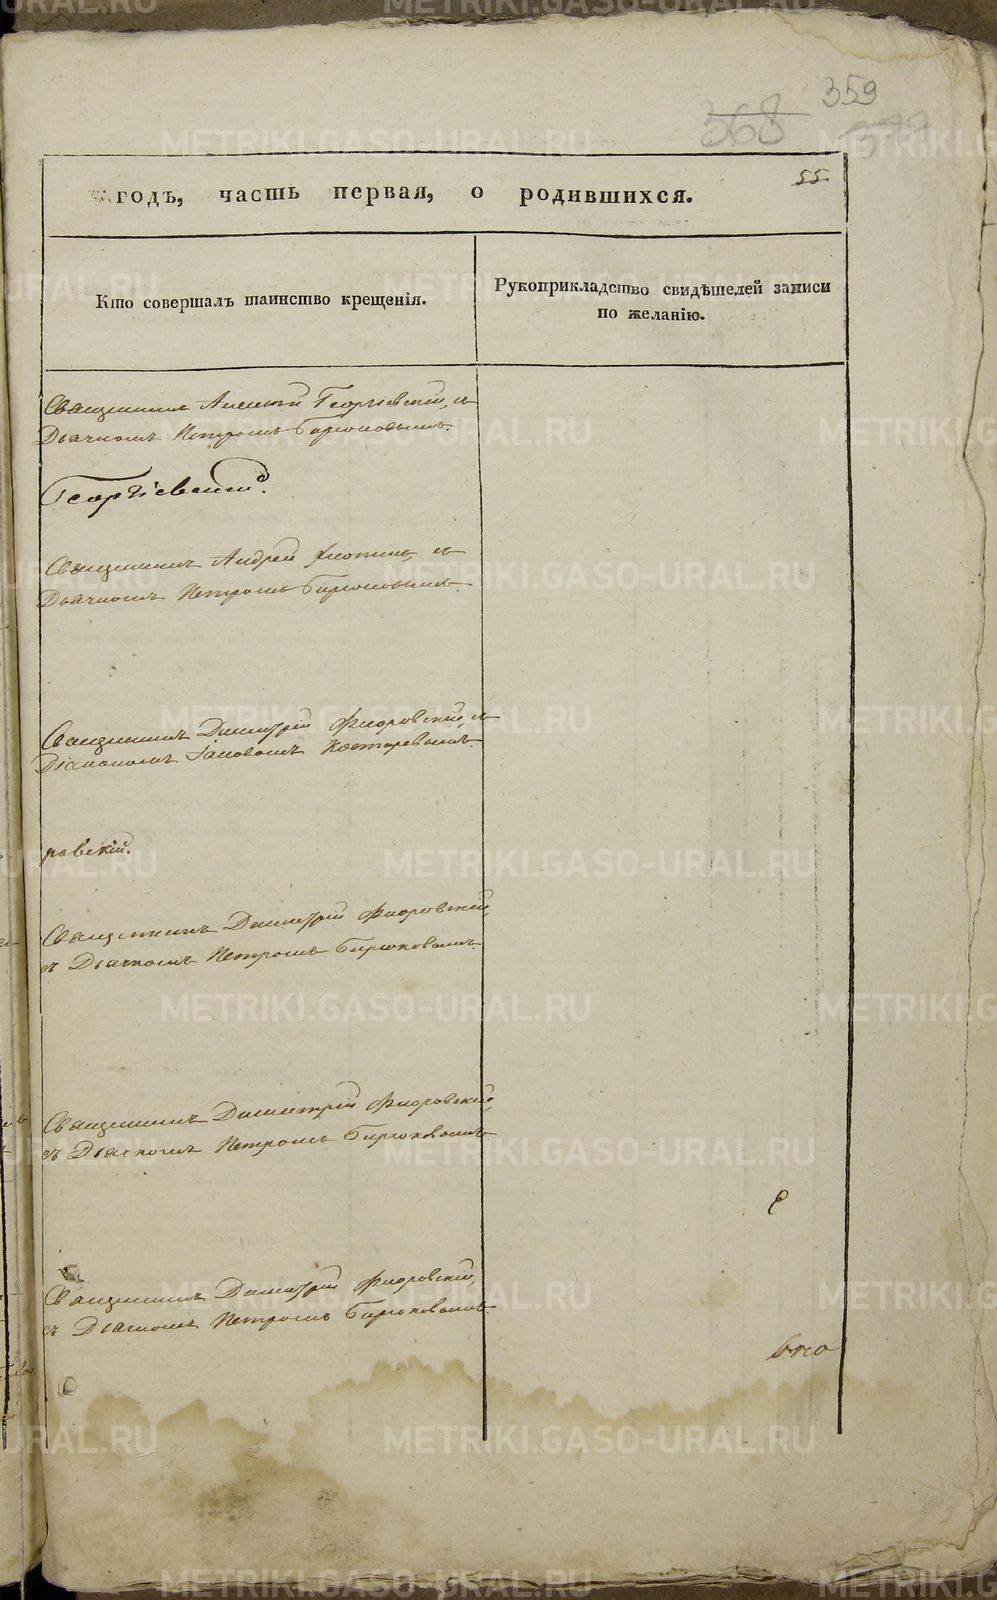 359
368
377
55.
годъ, часть первая, о родившихся.
Кто совершалъ таинство крещенія.
Рукоприкладство свидѣтелей записи
по желанію.
Священникъ Алексѣй Георгіевскій, съ
Дьячкомъ Петромъ Бирюковымъ.
Георгіевскій.
Священникъ Андрей съ
Дьячкомъ Петромъ Бирюковымъ.
Священникъ Димитрій Флоровскій, съ
Діакономъ Іаковомъ Костаревымъ.
ровскій.
Священникъ Димитрій Флоровскій,
съ Дьячкомъ Петромъ Бирюковымъ.
Священникъ Димитрій Флоровскій,
съ Дьячкомъ Петромъ Бирюковымъ
Священникъ Димитрій Флоровскій,
съ Дьячкомъ Петромъ Бирюковымъ.
METRIKI.GASO-URAL.RU